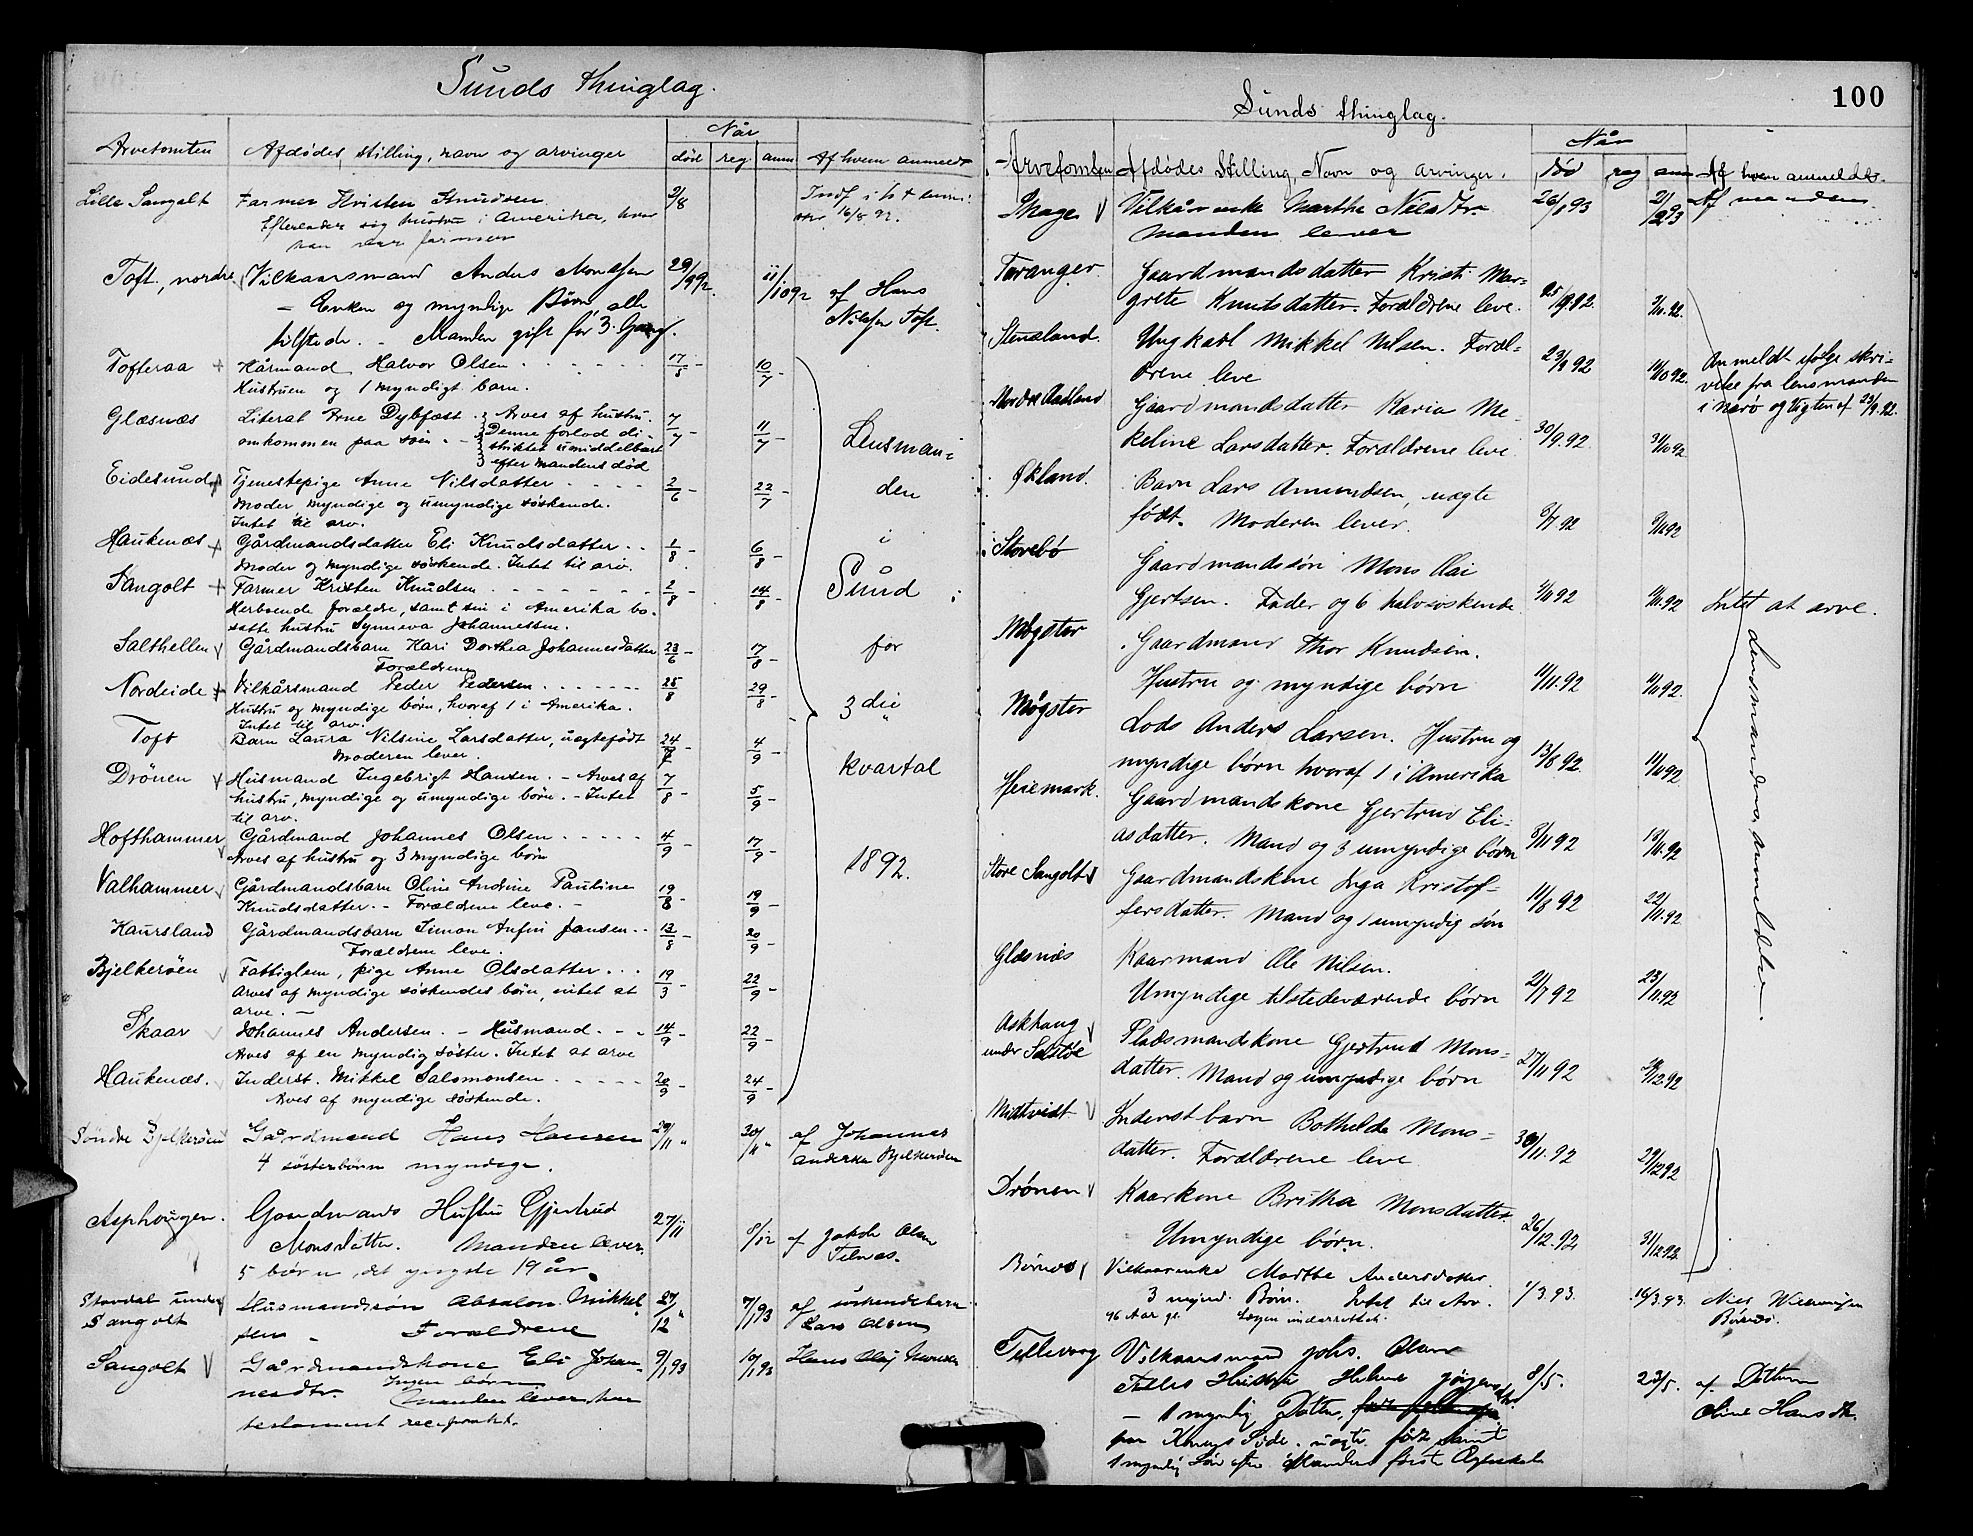 Sunds thinglag.
Arvetomten Afdødes, stilling, navn og arvinger Når død reg. anm. Af hvem anmeldt
Lille Sangolt Farmer Kristen Knudsen 2/8
Efterlader sig hustru i Amerika, hvor
han var farmer
16/8 92.
Toft, nordre Vilkaarsmand Anders Mondsen 29/9 92 11/10 92 af Hans
- Enken og myndige Børn, alle Nilsen Toft.
tilstede. - Manden gift for 3. Gang.
Tofteraa Kårmand Halvor Olsen 17/5 - 10/7 -
Hustruen og 1 myndigt barn.
Glæsnæs Literat Arne Dybfest Arves af hustru. 7/7 11/7 -
omkommen paa søen. - Denne forlod di-
striktet umiddelbart
efter mandens død
Lensman-
den
i
Sund
for
3die
kvartal
1892.
Eidesund Tjenestepige Anne Nilsdatter 2/6 - 22/7 -
Moder myndige og umyndige søskende.
Intet til arv.
Haukenæs Gårdmandsdatter Eli Knudsdatter 1/8 - 6/8 -
Moder og myndige søskende. Intet til arv.
Sangolt Farmer Kristen Knudsen 2/8 - 14/8 -
Herboende forældre, samt sin i Amerika bo-
satte hustru Synneva Johannessen.
Salthellen Gårdmandsbarn Kari Dorthea Johannesdatter 23/6 - 17/8 -
Forældrene
Nordeide Vilkårsmand Peder Pedersen 25/8 29/8 -
Hustru og myndige børn, hvoraf 1 i Amerika.
Intet til arv.
Toft Barn Laura Nilsine Larsdatter, uægtefødt 24/7 - 4/9 -
Moderen lever.
Drönen Husmand Ingebrigt Hansen. - Arves af 7/8 - 5/9 -
hustru, myndige og umyndige børn. - Intet
til arv.
Hofthammer Gårdmand Johannes Olsen 4/9 17/9 -
Arves af hustru og 3 myndige børn
Valhammer Gårdmandsbarn Oline Andrine Pauline 19/8 - 19/9 -
Knudsdatter. - Forældrene leve. -
Kaursland Gårdmandsbarn Simon Anfin Jansen 13/8 - 20/9 -
Forældrene leve.
Bjelkeröen Fattiglem, pige Anne Olsdatter 19/3 - 22/9 -
Arves af myndige søskendes børn, intet at
arve. -
Skaar Johannes Andersen. - Husmand. 14/9 - 22/9 -
Arves af en myndig söster. Intet at arve
Haukenæs. Inderst. Mikkel Salomonsen 20/9 - 24/9 -
Arves af myndige søskende.
Söndre Bjelkeröen Gårdmand Hans Hansen 29/11 " 30/11 " af Johannes
4 sösterbörn myndige. Anderssen Bjelkeröen
Asphougen. Gaardmands Hustru Gjertrud 27/11 8/12 af Jakob Olsen
Monsdatter. Manden lever. Telnæs.
5 börn, det yngste 19 år
Skovdal under Husmandssøn Absalon Mikkel- 27/12 " 7/1 93 af söskendebarn
Sangolt sen - Forældrene Lars Olsen
Sangolt Gårdmandskone Eli Johan- 9/1 93 10/1 93 Hans Olaj
nesdtr. Ingen børn
Manden lever, har
testament reciprokt.
100
Sunds thinglag.
Arvetomten Afdødes Stilling, Navn og arvinger. Når Død reg anm Af hvem anmeldt.
Vilkårenke Marthe Nilsdtr. 26/1 93 2/2 93 Af manden
Manden lever
Toranger. Gaardmandsdatter Kristi Mar-
grete Knutsdatter. Forældrene leve. 25/9 92.
Stenseland Ungkarl Mikkel Nilsen. Foræl-
drene leve 23/9 92 Anmeldt ifølge skri-
velse fra lensmanden
Gaardmandsdatter Karia Me-
keline Larsdatter. Forældrene leve 30/9. 92 31/10 92
Økland. Barn Lars Amundsen, uægte
født. Moderen lever.
Storebø Gaardmandssøn Mons Kai
Gjertsen. Fader og 6 halvsøskende Intet at arve.
Møgster Gaardmand Thor Knudsen.
Hustru og myndige børn 11/11. 92
Lensmandens anmeldelse.
Møgster Lods Anders Larsen. Hustru og
myndige børn hvoraf 1 i Amerika 13/8 92. 11/11 92
Heiemark. Gaardmandskone Gjertrud Eli-
asdatter. Mand og 3 umyndige børn
Store Sangolt Gaardmandskone Inga Kristof-
fersdatter. Mand og 1 umyndig søn 11/8 92 22/11. 92
Glæsnæs Kaarmand Ole Nilsen.
Umyndige tilstedeværende børn 21/7 92 23/11. 92
Askhaug Pladsmandskone Gjertrud Mons-
under datter. Mand og umyndige børn 27/11 92
Midtvidt Inderstbarn Bothilde Mons-
datter. Forældrene leve 30/11. 92 29/12 92
Drönen Kaarkone Britha Monsdatter.
Umyndige børn. 26/12. 92 31/12 92.
Børnæs Vilkaarenke Marthe Andersdatter 1/3. 93. 16/3. 93. Niels
3 mynd. Børn. Intet til Arv. Børnæs.
46 Aar gl.
Tellevaag Vilkaarsmand Johs. Olsen 8/5. 23/5. af Datteren
Telles Hustru Helene Oline Hansdtr.
- 1 myndig Datter,
uægte født samt
1 myndig Søn efter Mandens første Ægteskab